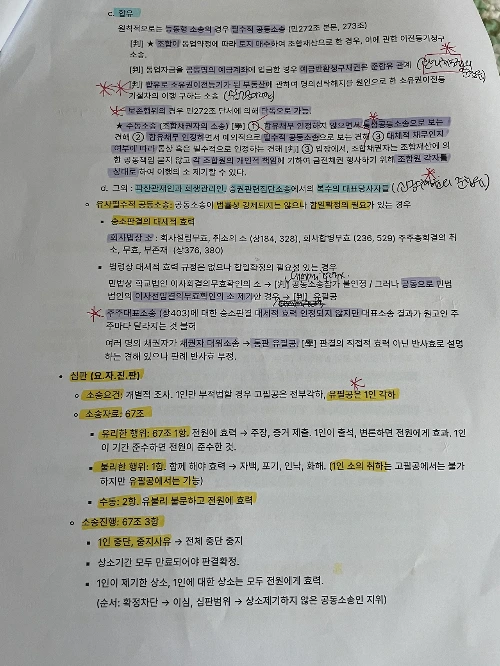 c. 합유
원칙적으로는 능동형 소송의 경우 필수적 공동소송 (민272조 본문, 273조)
[판] ★ 조합이 동업약정에 따라 토지 매수하여 조합재산으로 한 경우, 이에 관한 이전등기청구
소송.
[판] 동업자금을 공동명의 예금계좌에 입금한 경우 예금반환청구채권은 준합유 관계
[판] 합유로 소유권이전등기가 된 부동산에 관하여 명의신탁해지를 원인으로 한 소유권이전등
기절차의 이행 구하는 소송
보존행위의 경우 민272조 단서에 의해 단독으로 가능.
★ 수동소송 (조합채권자의 소송) [學] ① 합유채무 인정하지 않으면서 통상공동소송으로 보는
견해 ② 합유채무 인정하면서 예외적으로 필수적 공동소송으로 보는 견해 ③ 대체적 채무인지
여부에 따라 통상 혹은 필수적으로 인정하는 견해 [判] ③ 입장에서, 조합채권자는 조합재산에 의
한 공동책임 묻지 않고 각 조합원의 개인적 책임에 기하여 금전채권 행사하기 위해 조합원 각자를
상대로 하여 이행의 소 제기할 수 있다.
d. 그외 : 파산관재인과 회생관리인, 증권관련집단소송에서의 복수의 대표당사자들
유사필수적 공동소송: 공동소송이 법률상 강제되지는 않으나 합일확정의 필요가 있는 경우
승소판결의 대세적 효력
회사법상 소 : 회사설립무효, 취소의 소 (상184, 328), 회사합병무효 (236, 529) 주주총회결의 취
소, 무효, 부존재 (상376, 380)
법령상 대세적 효력 규정은 없으나 합일확정의 필요성 있는 경우
민법상 학교법인 이사회결의무효확인의 소 → [判] 공동소송참가 불인정 / 그러나 공동으로 민법
법인의 이사선임결의무효확인의 소 제기한 경우 → [判] 유필공
주주대표소송 (상403)에 대한 승소판결 대세적 효력 인정되지 않지만 대표소송 결과가 원고인 주
주마다 달라지는 것 불허
여러 명의 채권자가 채권자 대위소송 → 통판 유필공, [學] 판결의 직접적 효력 아닌 반사효로 설명
하는 견해 있으나 판례 반사효 부정.
심판 (요.자.진.판)
소송요건: 개별적 조사. 1인만 부적법할 경우 고필공은 전부각하, 유필공은 1인 각하
소송자료: 67조
유리한 행위: 67조 1항. 전원에 효력 → 주장, 증거 제출. 1인이 출석, 변론하면 전원에게 효과. 1인
이 기간 준수하면 전원이 준수한 것.
불리한 행위: 1항. 함께 해야 효력 → 자백, 포기, 인낙, 화해. (1인 소의 취하는 고필공에서는 불가
하지만 유필공에서는 가능)
수동: 2항. 유불리 불문하고 전원에 효력
소송진행: 67조 3항
1인 중단, 중지사유 → 전체 중단 중지
상소기간 모두 만료되어야 판결확정.
1인이 제기한 상소, 1인에 대한 상소는 모두 전원에게 효력.
(순서: 확정차단 → 이심, 심판범위 → 상소제기하지 않은 공동소송인 지위)